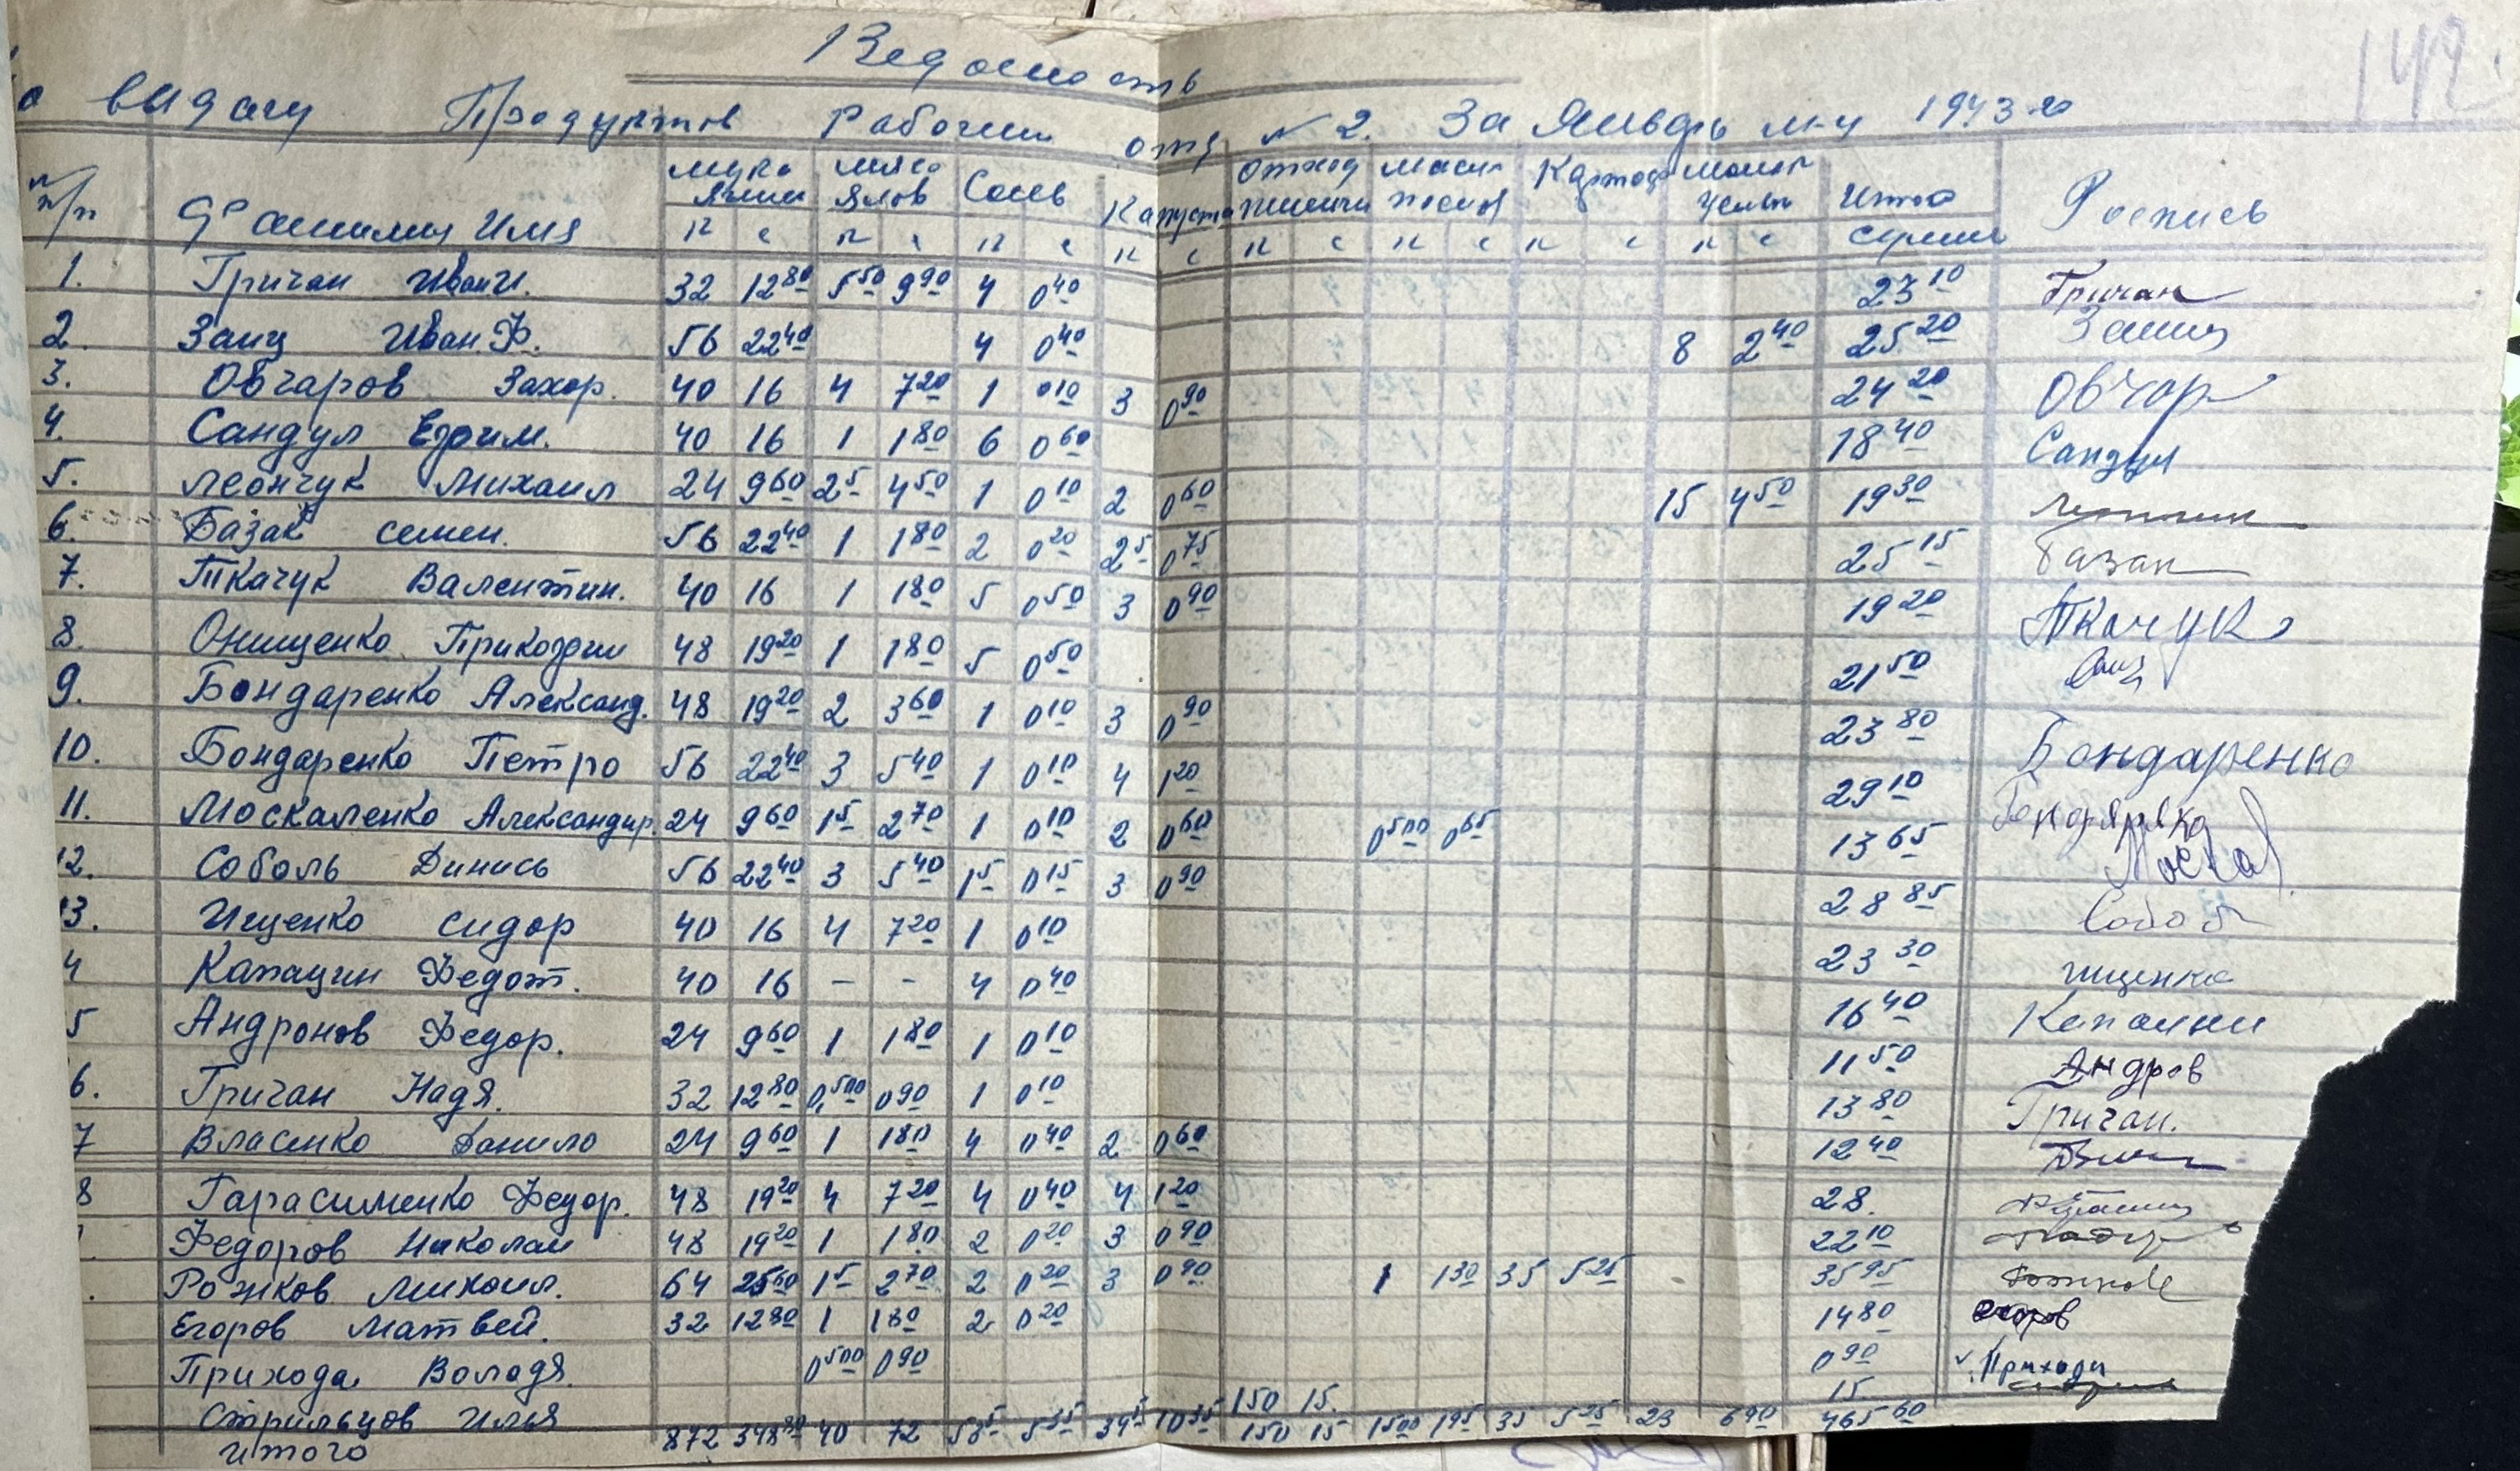 142
Ведомость
выдачу Продуктов Рабочим отд № 2. За Январь м-ц 1943 го
п/п Фамилия Имя мука Ячмен мясо Ялов Соль Капуста отход пшенич масл посн Картоф молок цельн Итого сумма Роспись
к с к с к с к с к с к с к с к с
1. Гричан Иван И. 32 12 80 5 50 9 90 4 0 40 23 10 Гричан
2. Заиц Иван Ф. 56 22 40 4 0 40 8 2 40 25 20 Заиц
3. Овчаров Захар. 40 16 4 7 20 1 0 10 3 0 90 24 20 Овчар
4. Сандул Ефрим. 40 16 1 1 80 6 0 60 18 40 Сандул
5. Леончук Михаил 24 9 60 2 5 4 50 1 0 10 2 0 60 15 4 50 19 30
6. Базак Семен. 56 22 40 1 1 80 2 0 20 2 5 0 75 25 15 Базак
7. Ткачук Валентин. 40 16 1 1 80 5 0 50 3 0 90 19 20 Ткачук
8. Онищенко Прикофии 48 19 20 1 1 80 5 0 50 21 50
9. Бондаренко Александ. 48 19 20 2 3 60 1 0 10 3 0 90 23 80 Бондаренко
10. Бондаренко Петро 56 22 40 3 5 40 1 0 10 4 1 20 29 10
11. Москаленко Александир. 24 9 60 1 5 2 70 1 0 10 2 0 60 0 500 0 65 13 65 Москал
12. Соболь Динись 56 22 40 3 5 40 1 5 0 15 3 0 90 28 85 Собол
13. Ищенко Сидор 40 16 4 7 20 1 0 10 23 30 ищенко
4 Капацин Федот. 40 16 – – 4 0 40 16 40
5 Андронов Федор. 24 9 60 1 1 80 1 0 10 11 50 Андров
6. Гричан Надя. 32 12 80 0,500 0 90 1 0 10 13 80 Гричан.
7 Власенко Данило 24 9 60 1 1 80 4 0 40 2 0 60 12 40
8 Гарасименко Федор. 48 19 20 4 7 20 4 0 40 4 1 20 28.
Федоров Николаи 48 19 20 1 1 80 2 0 20 3 0 90 22 10
Рожков Михаил. 64 25 60 1 5 2 70 2 0 20 3 0 90 1 1 30 35 5 25 35 95
Егоров Матвей. 32 12 80 1 1 80 2 0 20 14 80
Прихода Володя. 0 500 0 90 0 90 Приходи
Стрильцов Илья 150 15. 15
Итого 872 348 80 40 72 53 5 5 35 34 5 10 35 150 15 1500 1 95 35 5 25 23 6 90 465 60